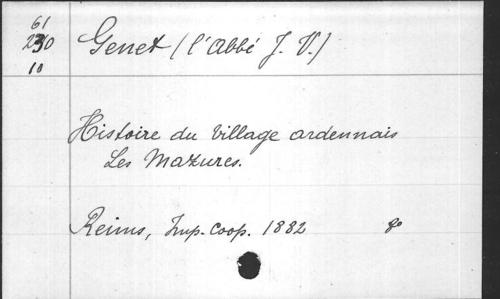 61
230
10
Genet (l'abbé J. V.)
Histoire du Village ardennais
Les Mazures.
Reims, Imp. coop. 1882 8º